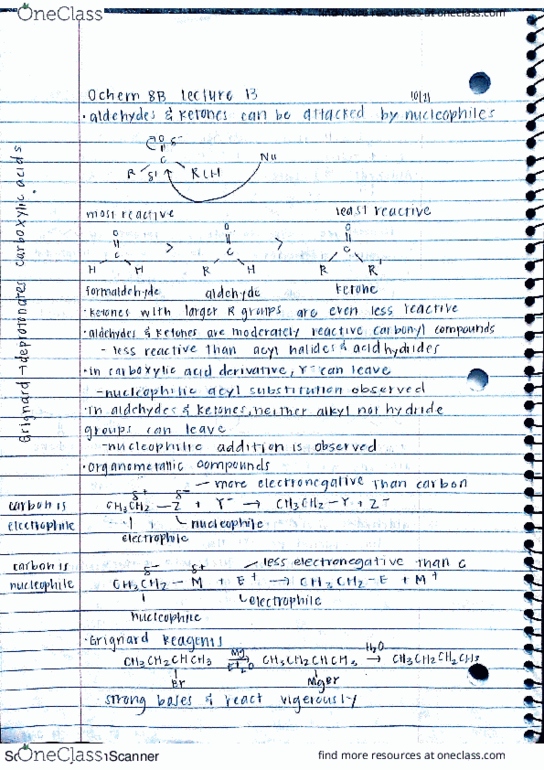 OneClass
find more resources at oneclass.com
Ochem 8B lecture 13
10/21
· aldehydes & ketones can be attacked by nucleophiles
O δ-
C
R δ+ R(H
Nu
most reactive least reactive
O O O
C > C > C
H H R H R R'
formaldehyde aldehyde ketone
· ketones with larger R groups are even less reactive
· aldehydes & ketones are moderately reactive carbonyl compounds
- less reactive than acyl halides & acid
· in carboxylic acid derivative, Y- can leave
- nucleophilic acyl substitution observed
· in aldehydes & ketones, neither alkyl not hydride
groups can leave
- nucleophilic addition is observed
· organometallic compounds
more electronegative than carbon
δ+ δ-
carbon is electrophile
CH3CH2 - Z + Y- → CH3CH2 - Y + Z-
nucleophile
electrophile
less electronegative than C
δ- δ+
carbon is nucleophile
CH3CH2 - M + E+ → CH3CH2 - E + M+
electrophile
nucleophile
· Grignard Reagents
CH3CH2CHCH3 Mg Et2O CH3CH2CHCH3 H2O → CH3CH2CH2CH3
Br MgBr
strong bases & react vigerously
Grignard → deprotonates carboxylic acids
OneClass
Scanner
find more resources at oneclass.com